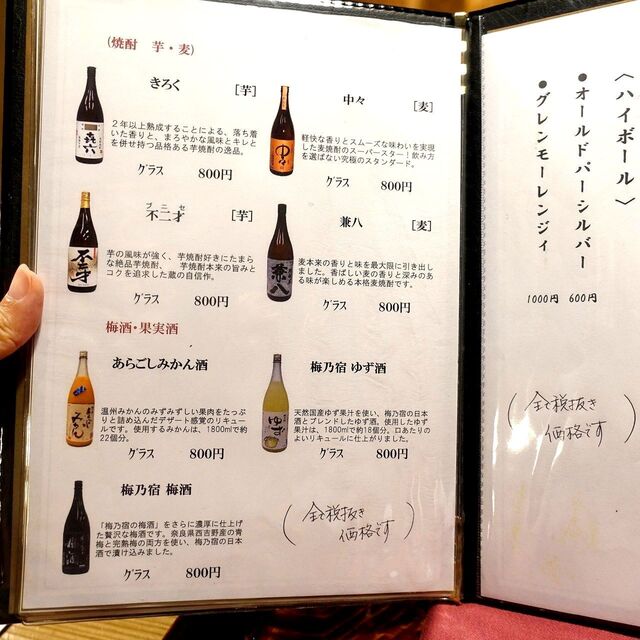 (焼酎 芋・麦)
きろく [芋]
2年以上熟成することによる、落ち着
いた香りと、まろやかな風味とキレと
を併せ持つ品格ある芋焼酎の逸品。
グラス 800円
㐂六
中々 [麦]
軽快な香りとスムーズな味わいを実現
した麦焼酎のスーパースター!飲み方
を選ばない究極のスタンダード。
グラス 800円
中々
ブニセ
不二才 [芋]
芋の風味が強く、芋焼酎好きにたまら
な絶品芋焼酎、 芋焼酎本来の旨みと
コクを追求した蔵の自信作。
グラス 800円
不二才
兼八 [麦]
麦本来の香りと味を最大限に引き出し
ました。香ばしい麦の香りと深みのあ
る味が楽しめる本格麦焼酎です。
グラス 800円
兼八
梅酒・果実酒
あらごしみかん酒
温州みかんのみずみずしい果肉をたっぷ
りと詰め込んだデザート感覚のリキュー
ルです。使用するみかんは、1800㎖で約
22個分。
グラス 800円
みかん
梅乃宿 ゆず酒
天然国産ゆず果汁を使い、梅乃宿の日本
酒とブレンドしたゆず酒。使用したゆず
果汁は、1800㎖で約18個分。口あたりの
よいリキュールに仕上がりました。
グラス 800円
ゆず
梅乃宿 梅酒
「梅乃宿の梅酒」をさらに濃厚に仕上げ
た贅沢な梅酒です。奈良県西吉野産の青
梅と完熟梅の両方を使い、梅乃宿の日本
酒で漬け込みました。
グラス 800円
梅酒
(全て税抜き
価格です)
〈ハイボール〉
●オールドパーシルバー
600円
●グレンモーレンジィ
1000円
(全て税抜き
価格です)